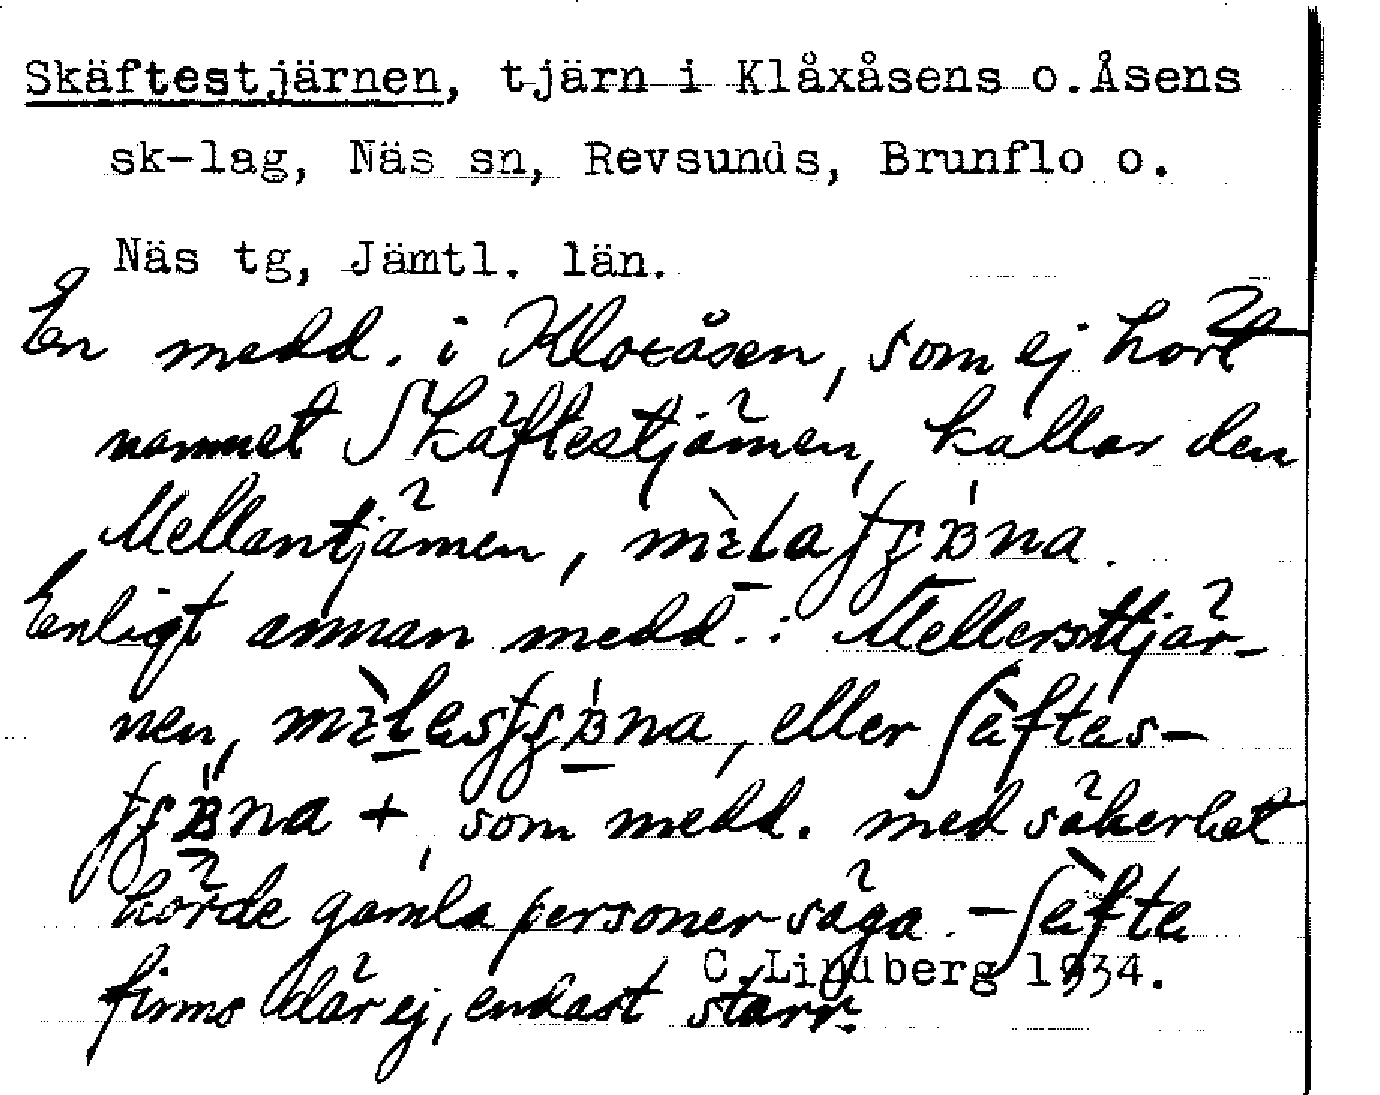 Skäftestjärnen, tjärn i Klåxåsens o.Åsens
sk-lag, Näs sn, Revsunds, Brunflo o.
Näs tg, Jämtl. län.
En medd. i Kloxåsen, som ej hört
namnet Skäftestjärnen, kallar den
Mellantjärnen,
Enligt annan medd.: Mellersttjär-
nen, eller
+, som medd. med säkerhet
hörde gamla personer säga. -
finns där ej, endast starr.
C. Lindberg 1934.